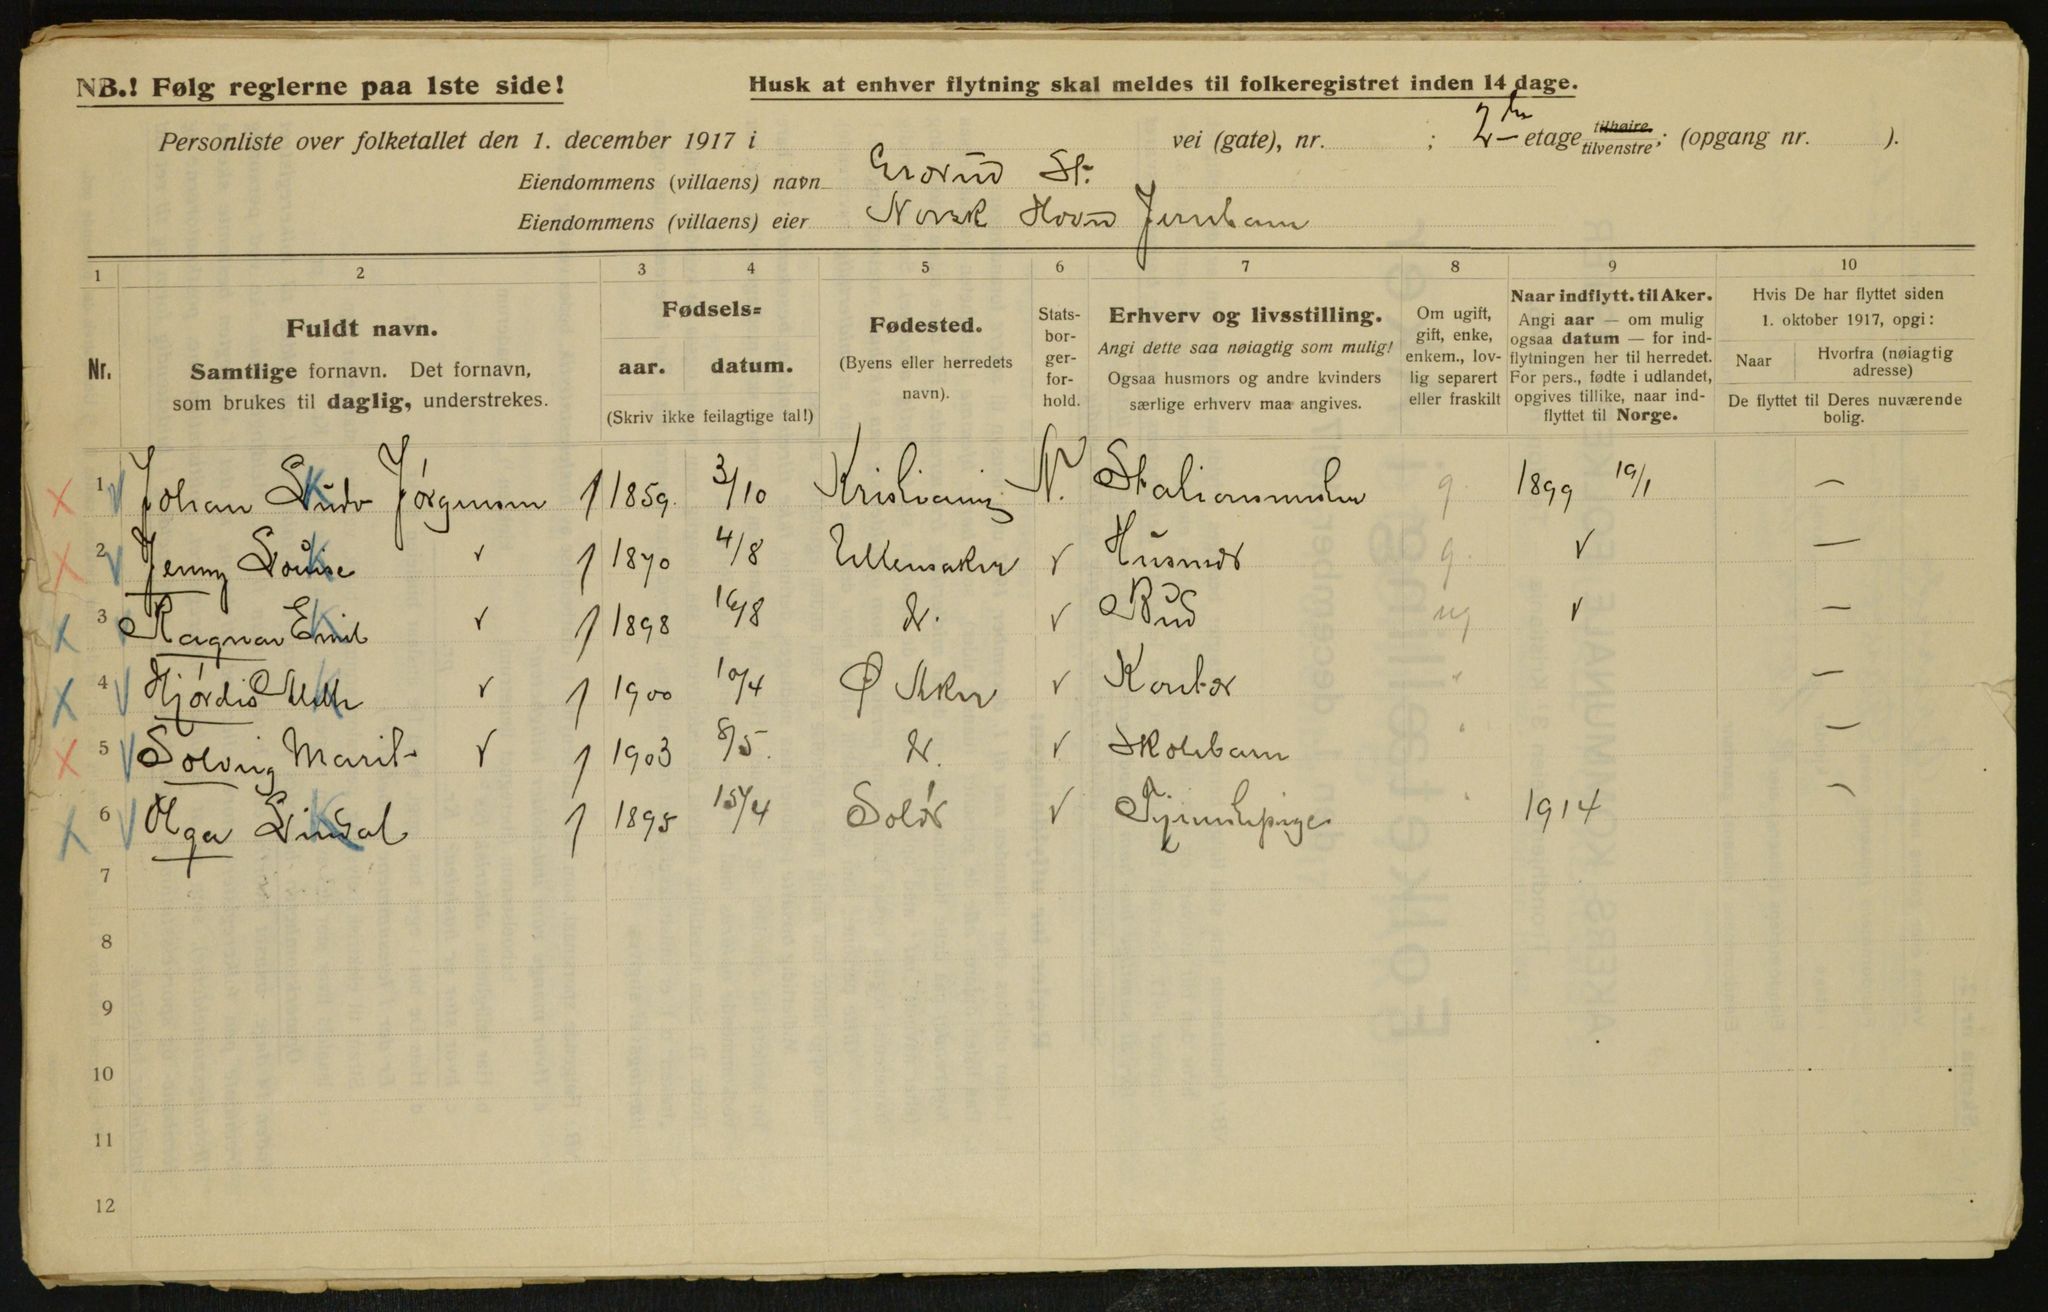 NB.! Følg reglerne paa 1ste side! Husk at enhver flytning skal meldes til folkeregistret inden 14 dage.
Personliste over folketallet den 1. december 1917 i vei (gate), nr. ; 2 etage tilhøire. tilvenstre ; (opgang nr. ).
Eiendommens (villaens) navn Grorud St.
Eiendommens (villaens) eier Norsk Hoved Jernbane
1 2 3 4 5 6 7 8 9 10
Nr.
Fuldt navn.
Samtlige fornavn. Det fornavn,
som brukes til daglig, understrekes.
Fødsels=
aar. datum.
(Skriv ikke feilagtige tal!)
Fødested.
(Byens eller herredets
navn).
Stats-
bor-
ger-
for-
hold.
Erhverv og livsstilling.
Angi dette saa nøiagtig som mulig!
Ogsaa husmors og andre kvinders
særlige erhverv maa angives.
Om ugift,
gift, enke,
enkem., lov-
lig separert
eller fraskilt
Naar indflytt. til Aker.
Angi aar — om mulig
ogsaa datum — for ind-
flytningen her til herredet.
For pers., fødte i udlandet,
opgives tillike, naar ind-
flyttet til Norge.
Hvis De har flyttet siden
1. oktober 1917, opgi:
Naar Hvorfra (nøiagtig
adresse)
De flyttet til Deres nuværende
bolig.
1 Johan Ludv Jórgensen 1859 3/10 Kristiania N. Stationsmester g. 1899 19/1 —
2 Jenny Louise √ 1870 4/8 Ullensaker √ Husmor g. √ —
3 Ragnar Emil √ 1898 16/8 d. √ Bud ug √ —
4 Hjórdis √ 1900 10/4 Ø Aker √ Kontor " —
5 Solveig Marit √ 1903 8/5. d. √ Skolebarn " —
6 Olga Lindal 1895 15/4 Solór √ Tjenestepige " 1914 —
7
8
9
10
11
12